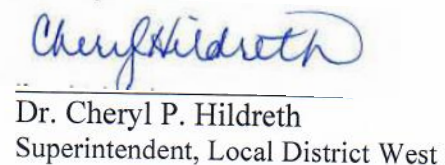 Cheryl Hildreth
Dr. Cheryl P. Hildreth
Superintendent, Local District West